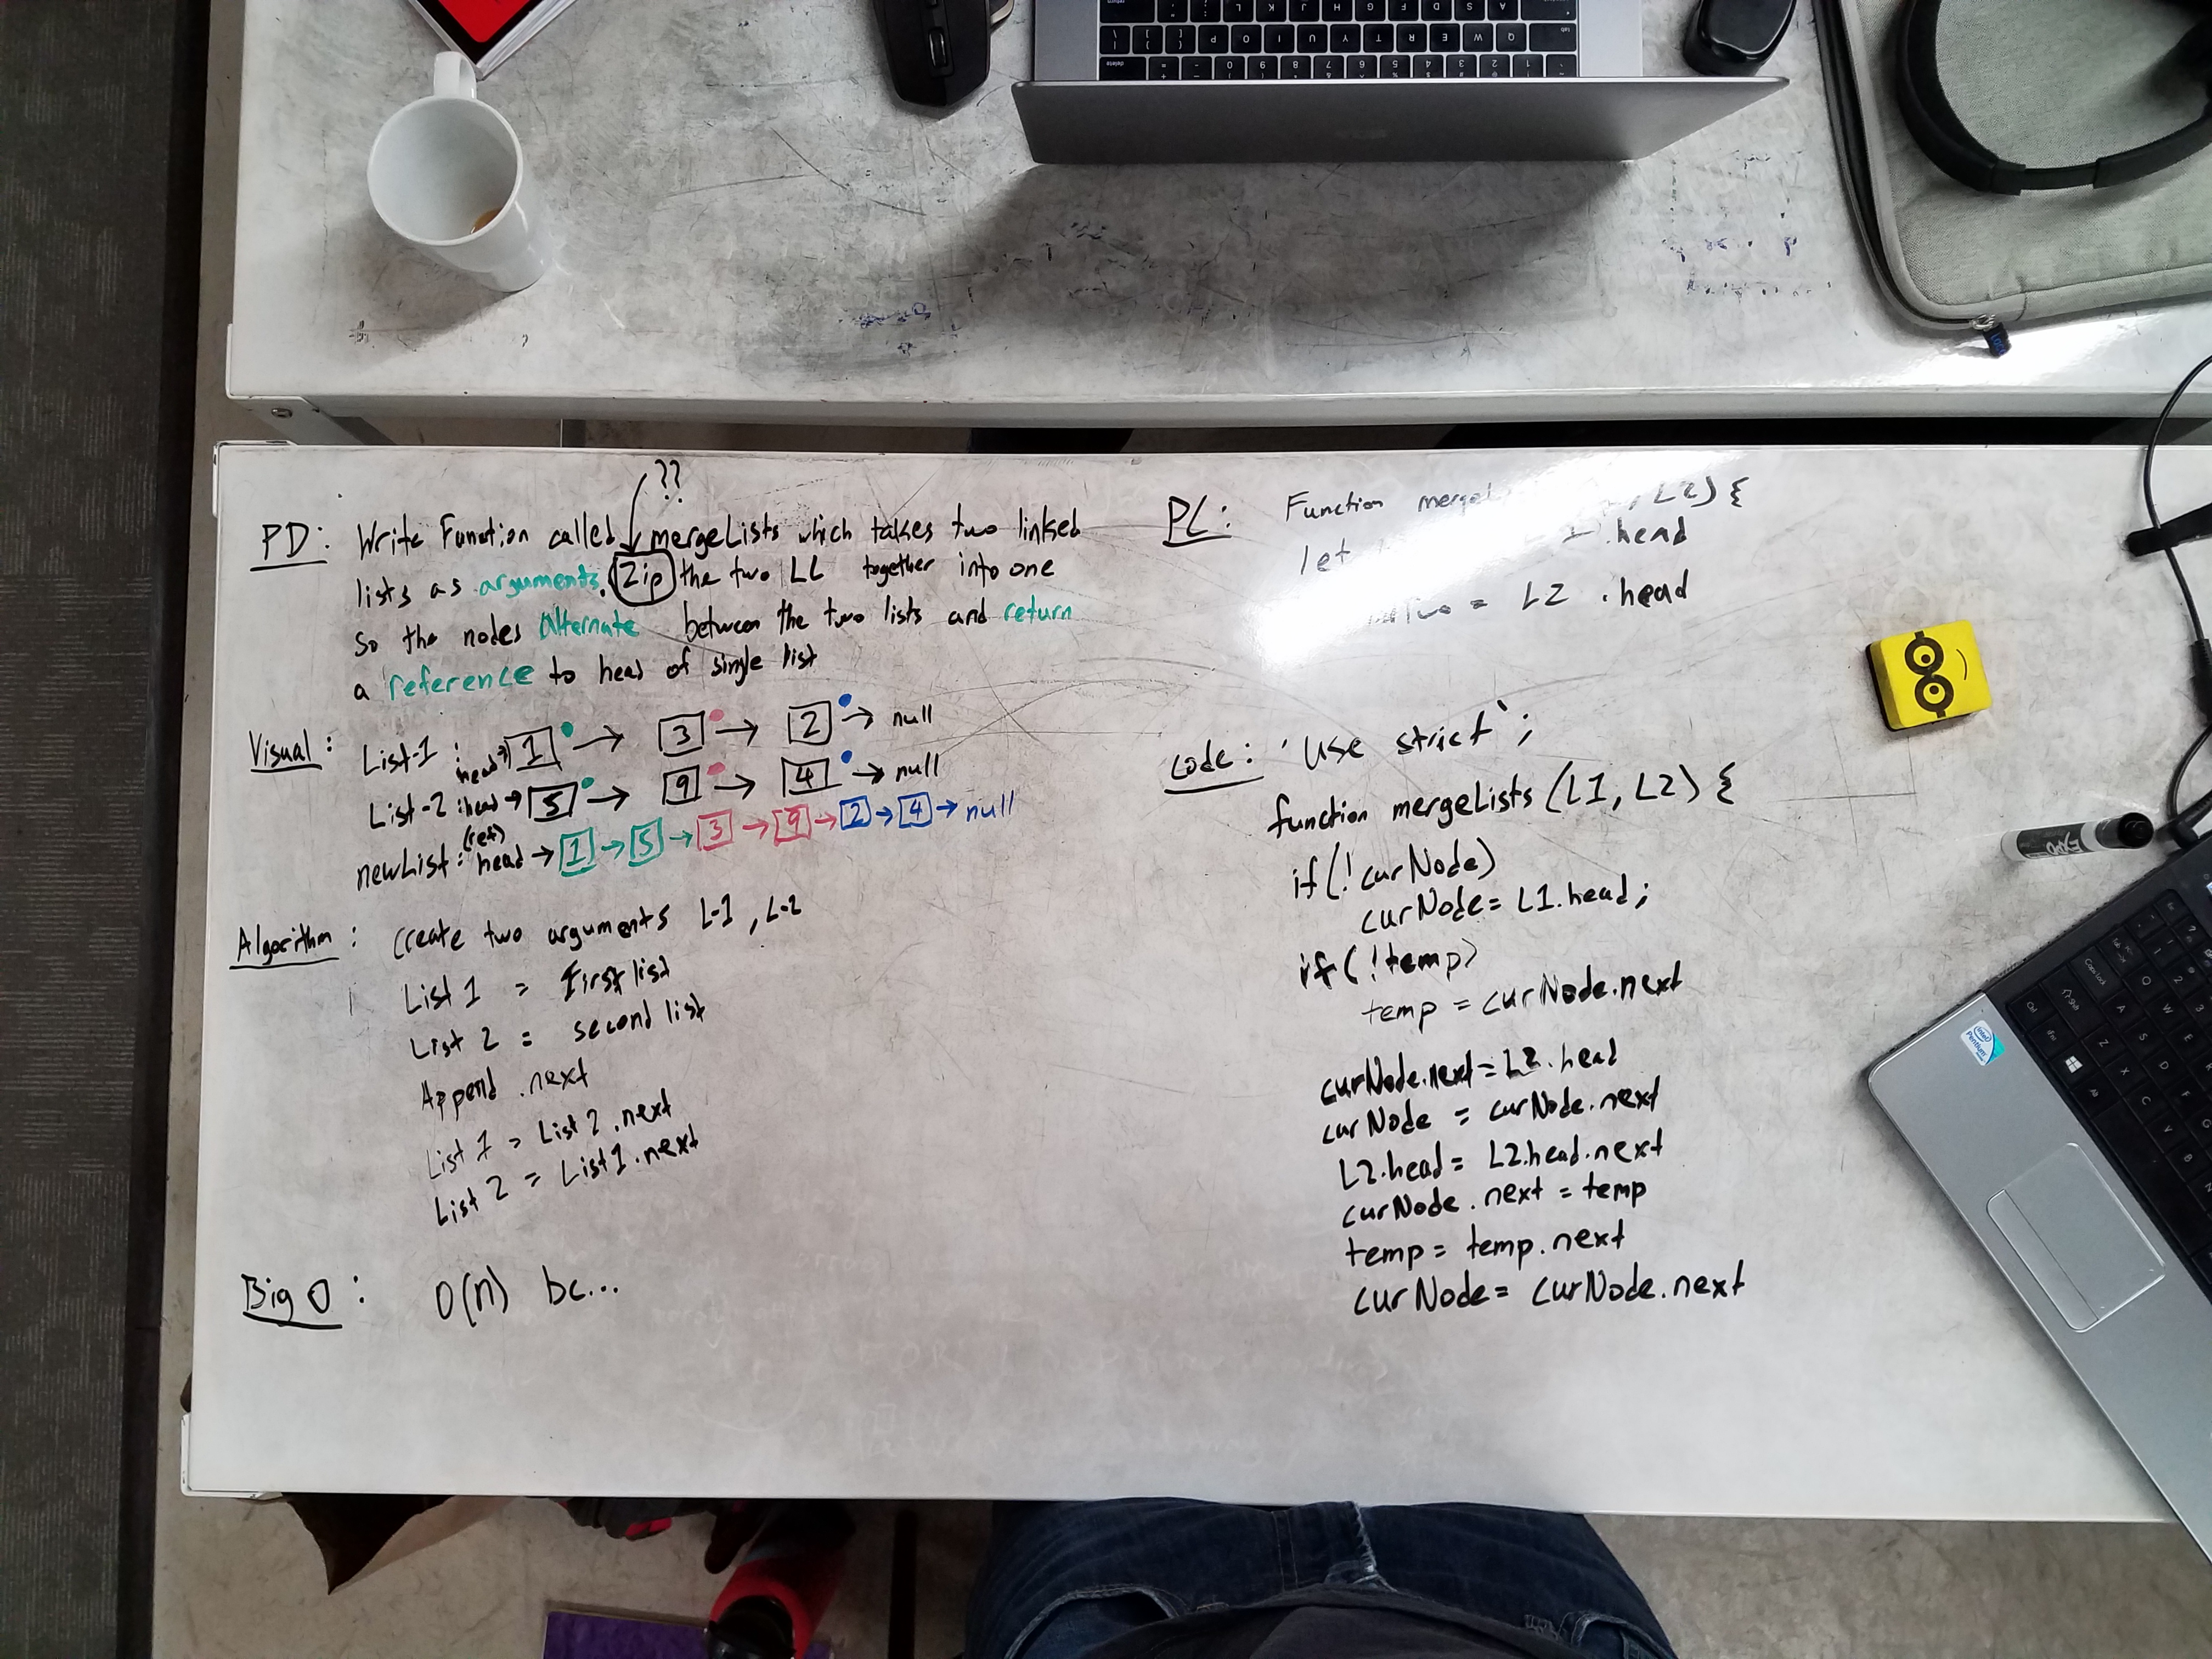 ??
PD: Write Function called mergeLists which takes two linked
lists as arguments. Zip the two LL together into one
so the nodes alternate between the two lists and return
a reference to head of single list
Visual: List-1: head→ 1 → 3 → 2 → null
List-2: head → 5 → 9 → 4 → null
newList: (ref) head → 1 → 5 → 3 → 9 → 2 → 4 → null
Algorithm: create two arguments L-1, L-2
List 1 = first list
List 2 = second list
Append .next
List 1 = List 2.next
List 2 = List1.next
Big O: O(n) bc...
PC: Function L2) {
let .head
= L2 .head
Code: 'use strict';
function mergeLists (L1, L2) {
if(!curNode)
curNode = L1.head;
if(!temp)
temp = curNode.next
curNode.next = L2.head
curNode = curNode.next
L2.head = L2.head.next
curNode.next = temp
temp = temp.next
curNode = curNode.next
EXPO
intel
Pentium